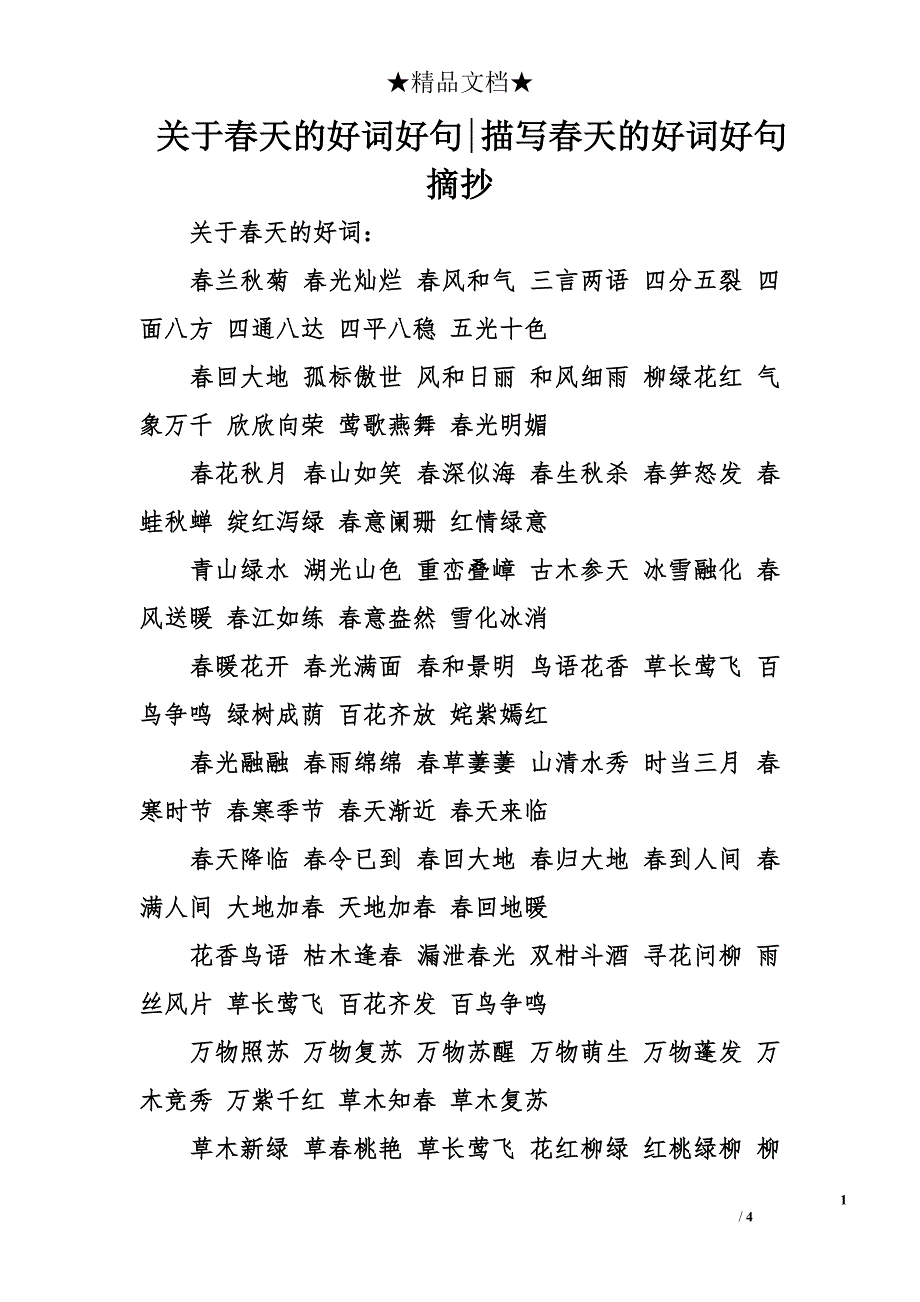 ★精品文档★
关于春天的好词好句|描写春天的好词好句
摘抄
关于春天的好词：
春兰秋菊 春光灿烂 春风和气 三言两语 四分五裂 四
面八方 四通八达 四平八稳 五光十色
春回大地 孤标傲世 风和日丽 和风细雨 柳绿花红 气
象万千 欣欣向荣 莺歌燕舞 春光明媚
春花秋月 春山如笑 春深似海 春生秋杀 春笋怒发 春
蛙秋蝉 绽红泻绿 春意阑珊 红情绿意
青山绿水 湖光山色 重峦叠嶂 古木参天 冰雪融化 春
风送暖 春江如练 春意盎然 雪化冰消
春暖花开 春光满面 春和景明 鸟语花香 草长莺飞 百
鸟争鸣 绿树成荫 百花齐放 姹紫嫣红
春光融融 春雨绵绵 春草萋萋 山清水秀 时当三月 春
寒时节 春寒季节 春天渐近 春天来临
春天降临 春令已到 春回大地 春归大地 春到人间 春
满人间 大地加春 天地加春 春回地暖
花香鸟语 枯木逢春 漏泄春光 双柑斗酒 寻花问柳 雨
丝风片 草长莺飞 百花齐发 百鸟争鸣
万物照苏 万物复苏 万物苏醒 万物萌生 万物蓬发 万
木竞秀 万紫千红 草木知春 草木复苏
草木新绿 草春桃艳 草长莺飞 花红柳绿 红桃绿柳 柳
1
/ 4